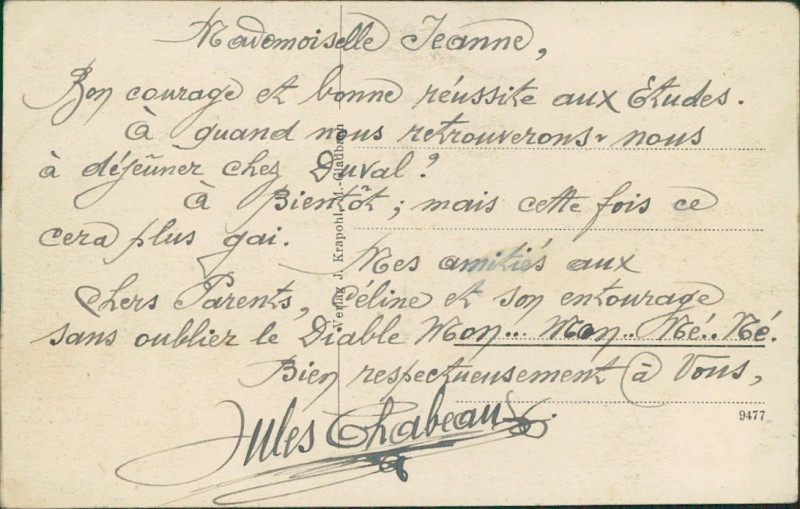 Mademoiselle Jeanne,
Bon courage et bonne réussite aux Études.
à quand nous retrouverons-nous
à déjeûner chez Duval?
à Bientôt; mais cette fois ce
cera plus gai.
Mes amitiés aux
chers Parents, Céline et son entourage
sans oublier le Diable Mon... Mon.. Mé.. Mé.
Bien respectueusement à Vous,
Jules Chabeau
Verlag J. Krapohl, M.-Gladbach
9477